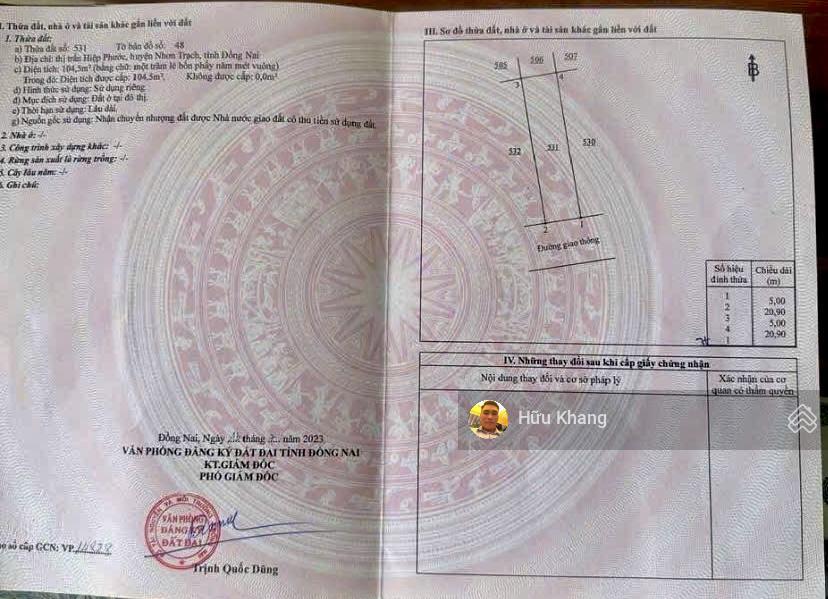 I. Thửa đất, nhà ở và tài sản khác gắn liền với đất
1. Thửa đất:
a) Thửa đất số: 531 Tờ bản đồ số: 48
b) Địa chỉ: thị trấn Hiệp Phước, huyện Nhơn Trạch, tỉnh Đồng Nai
c) Diện tích: 104,5m² (bằng chữ: một trăm lẻ bốn phẩy năm mét vuông)
Trong đó: Diện tích được cấp: 104,5m². Không được cấp: 0,0m².
d) Hình thức sử dụng: Sử dụng riêng
đ) Mục đích sử dụng: Đất ở tại đô thị.
e) Thời hạn sử dụng: Lâu dài.
g) Nguồn gốc sử dụng: Nhận chuyển nhượng đất được Nhà nước giao đất có thu tiền sử dụng đất.
2. Nhà ở: -/-
3. Công trình xây dựng khác: -/-
4. Rừng sản xuất là rừng trồng: -/-
5. Cây lâu năm: -/-
6. Ghi chú:
Đồng Nai, Ngày tháng năm 2023
VĂN PHÒNG ĐĂNG KÝ ĐẤT ĐAI TỈNH ĐỒNG NAI
KT.GIÁM ĐỐC
PHÓ GIÁM ĐỐC
VĂN PHÒNG
ĐĂNG KÝ
ĐẤT ĐAI
Trịnh Quốc Dũng
sổ cấp GCN: VP.
III. Sơ đồ thửa đất, nhà ở và tài sản khác gắn liền với đất
B
505 506 507
3 4
532 531 530
2 1
Đường giao thông
Số hiệu đỉnh thửa Chiều dài (m)
1
5,00
2
20,90
3
5,00
4
20,90
1
IV. Những thay đổi sau khi cấp giấy chứng nhận
Nội dung thay đổi và cơ sở pháp lý
Xác nhận của cơ
quan có thẩm quyền
Hữu Khang